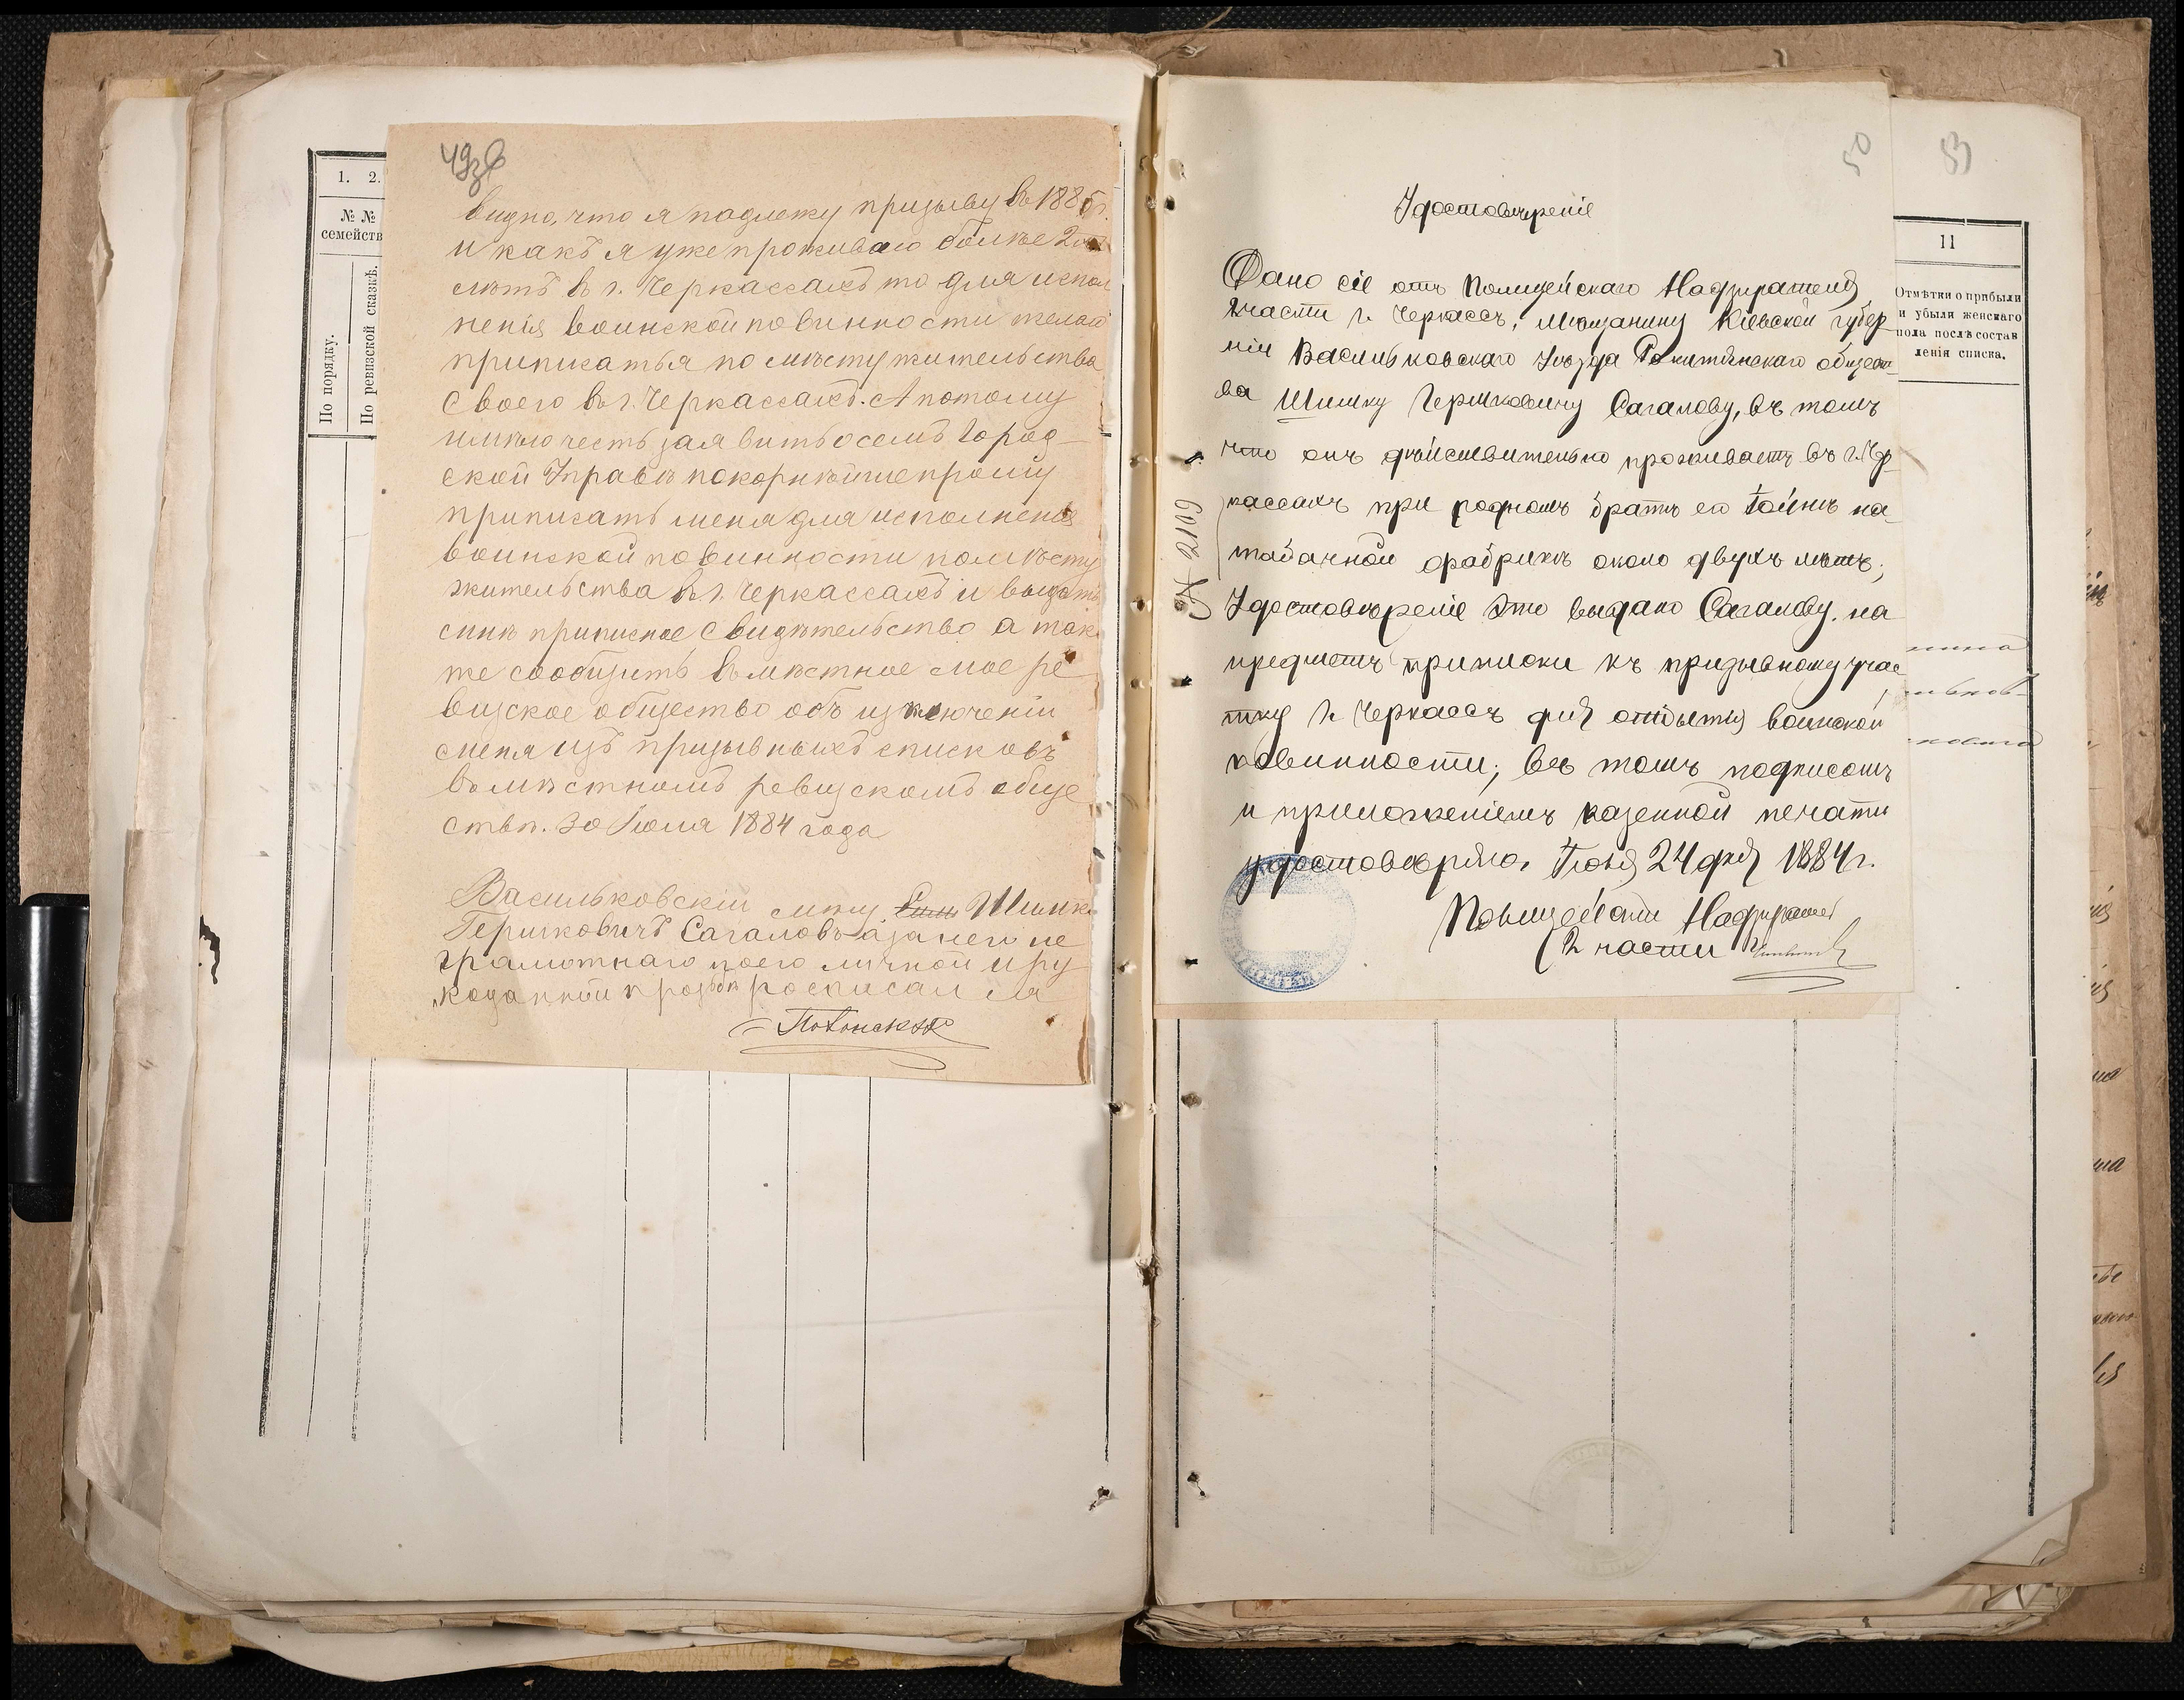 1. 2.
№ №
семейств
По порядку.
По ревизской сказкѣ.
49
видно, что я подлежу призыву въ 1885 г.
и какъ я уже проживаю болѣе 2хъ
лѣтъ въ г. Черкассахъ то для испол
ненія воинской повинности желаю
приписатья по мѣсту жительства
своего въ г. Черкассахъ. А потому
имѣю честь заявить о семъ Город-
ской Управѣ покорнѣйше прошу
приписать меня для исполненія
воинской повинности по мѣсту
жительства въ г. Черкассахъ и выдать
мнѣ приписное свидѣтельство а так
же сообщить въ мѣстное мое ре
визское общество объ изключеніи
меня изъ призывныхъ списковъ
въ мѣстномъ ревизскомъ обще
ствѣ. 30 Іюля 1884 года
Васильковскій мѣщ. Шимк
Гершковичъ Сагаловъ а за него не
грамотнаго по его личной и ру
коданной прозьбѣ росписался
50
53
Удостовѣреніе
Дано сіе отъ Полицейскаго Надзирателя
2 части г. Черкассъ, Мѣщанину Кіевской губер
ніи Васильковскаго Уѣзда Рокитянскаго общест
ва Шимку Гершковичу Сагалову, въ томъ
что онъ дѣйствительно проживаетъ въ г. Чер
кассахъ при родномъ братѣ его на
табачной фабрикѣ около двухъ лѣтъ;
Удостовѣреніе это выдано Сагалову на
предметъ приписки къ призывному учас
тку г. Черкассъ для отбытія воинской
повинности; въ томъ подписомъ
и приложеніемъ казенной печати
удостовѣряю. Іюня 24 дня 1884 г.
Полицейскій Надзиратель
2 части
№ 2109
11
Отмѣтки о прибыли
и убыли женскаго
пола послѣ состав
ленія списка.